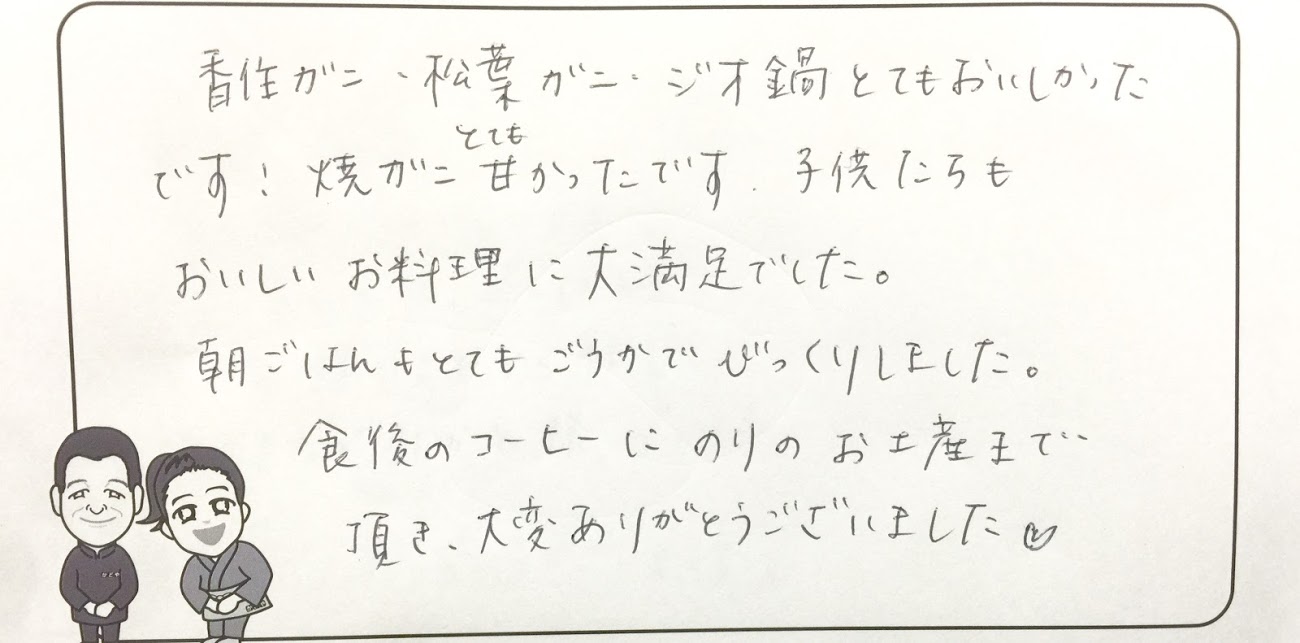 香住ガニ・松葉ガニ・ジオ鍋とてもおいしかった
です！焼ガニとても甘かったです。子供たちも
おいしいお料理に大満足でした。
朝ごはんもとてもごうかでびっくりしました。
食後のコーヒーにのりのお土産まで
頂き、大変ありがとうございました